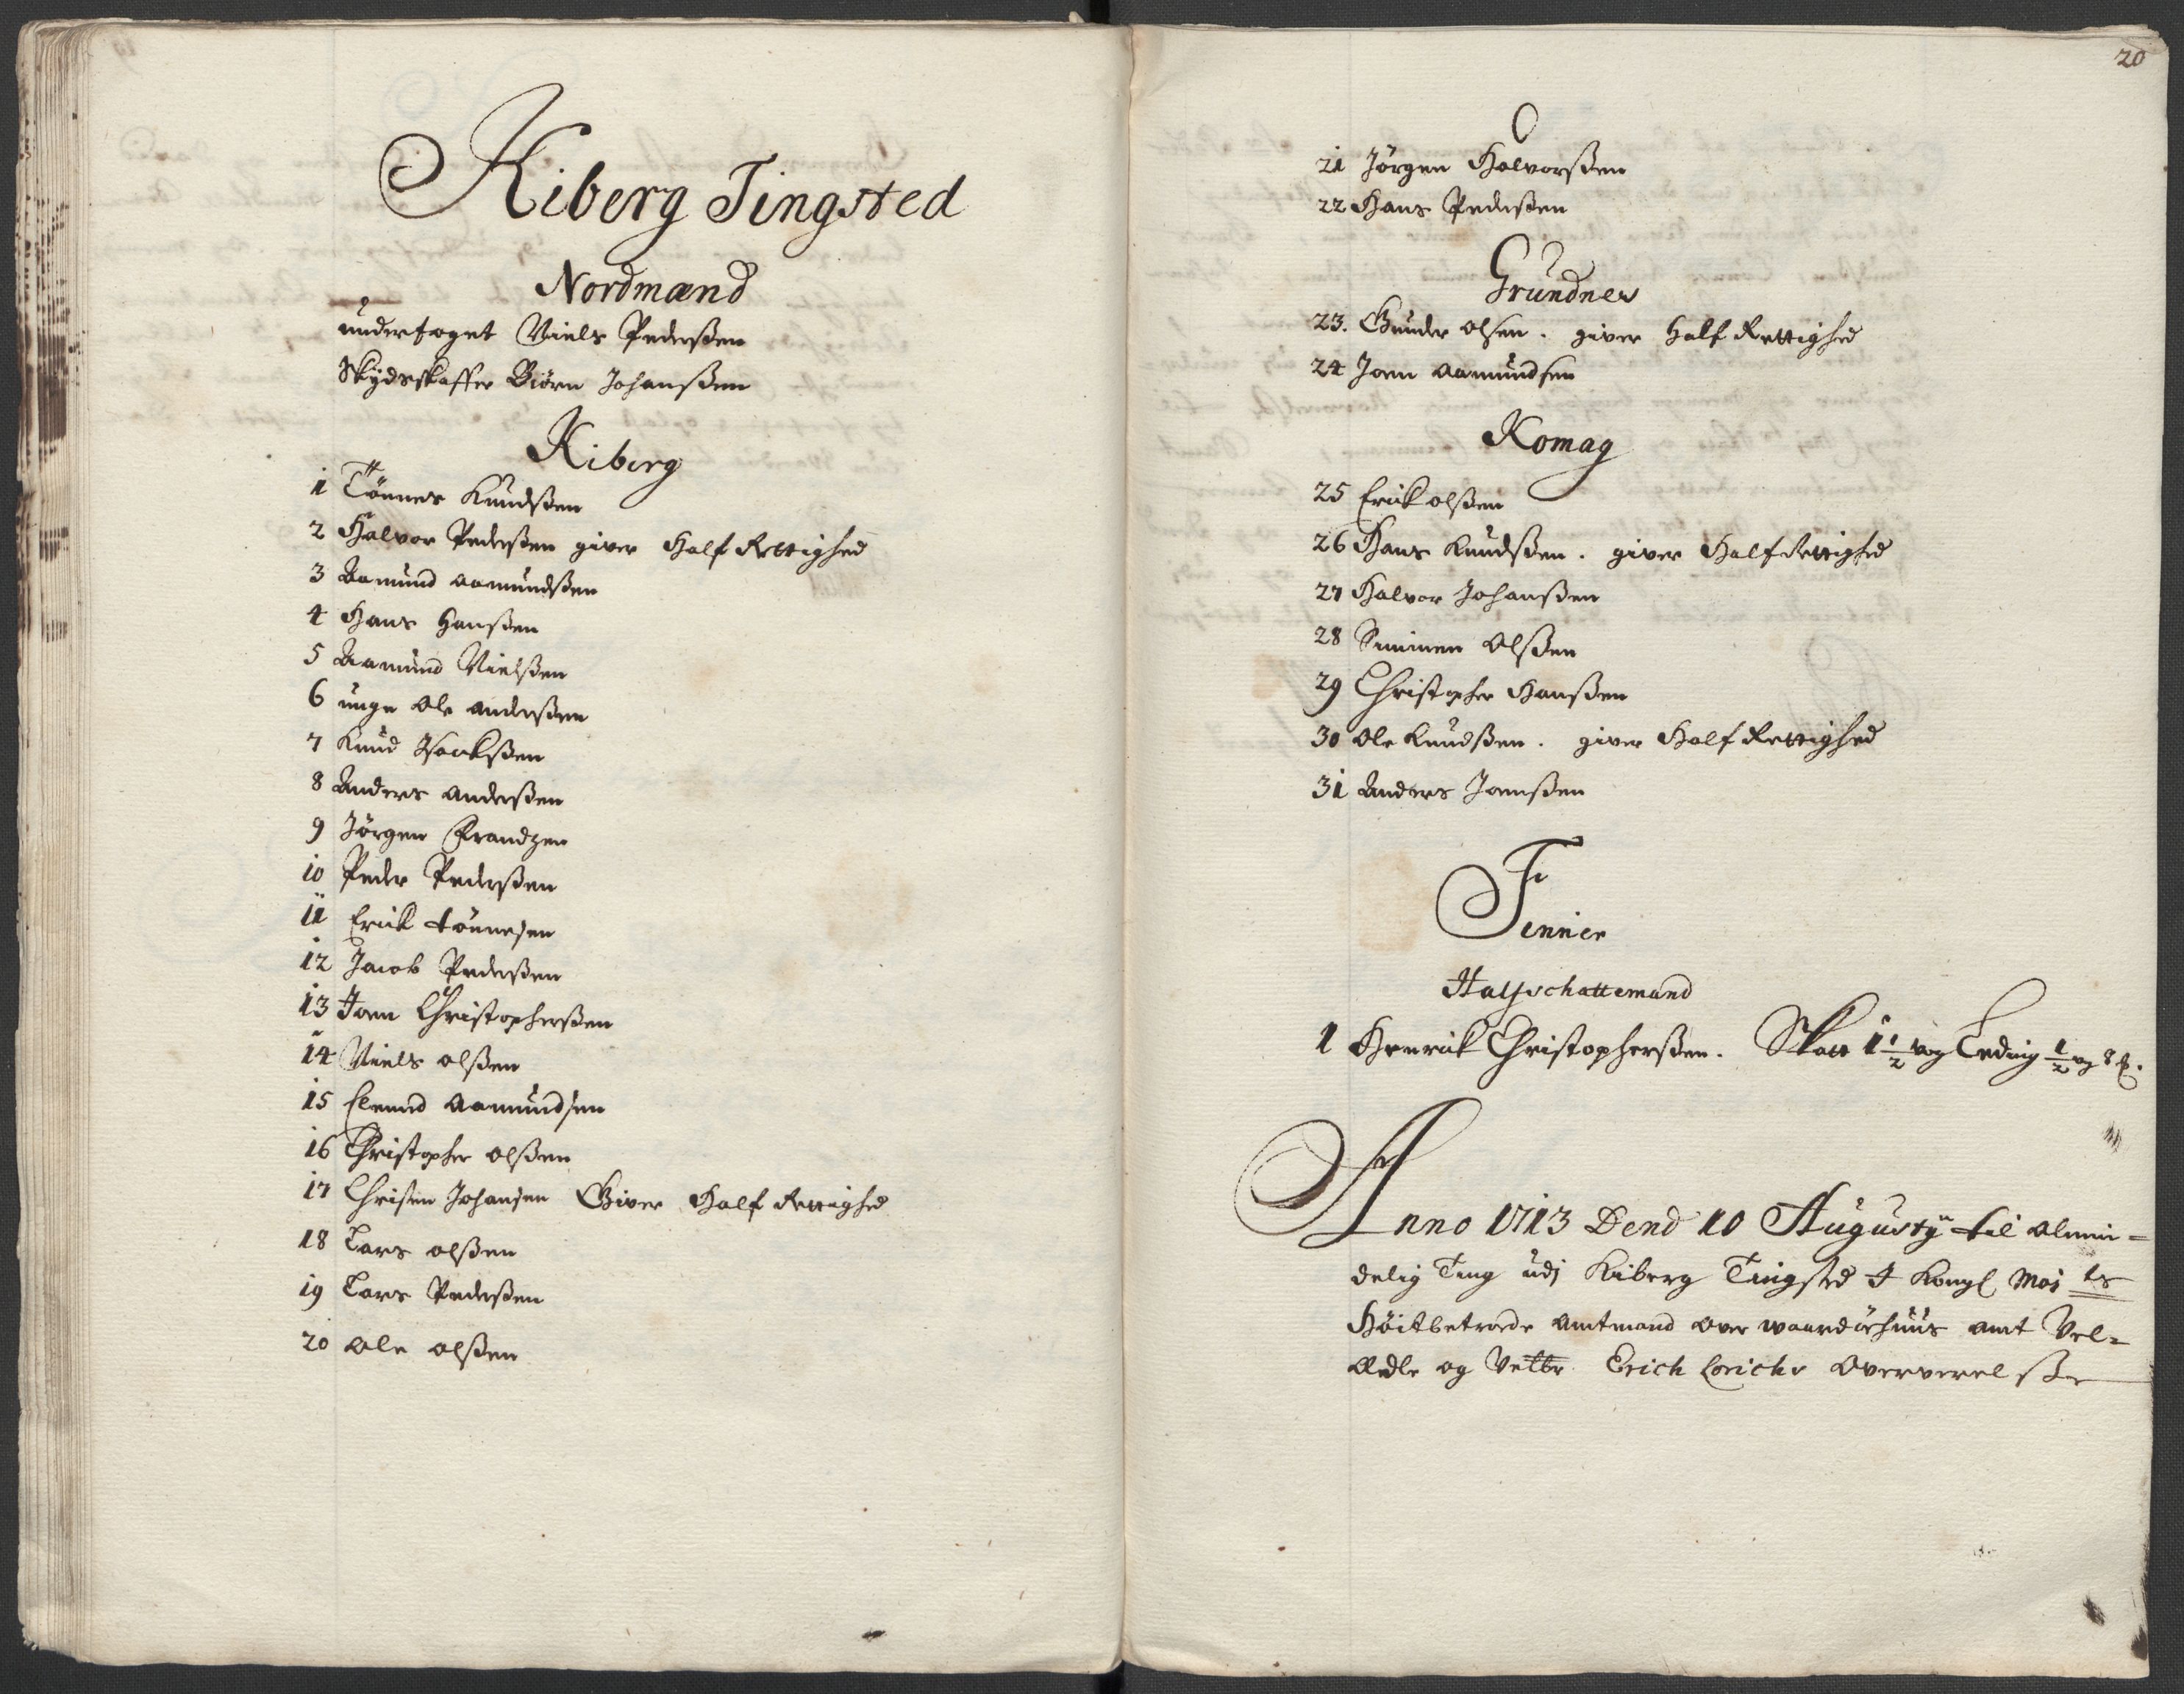 Kiberg Tingsted
Nordmænd
underfoget Niels Pederßen
Skydsskaffer Biörn Johanßen
Kiberg
1 Tönnes Knudßen
2 Halvor Pederßen giver Half Rettighed
3 Aamund Aamundßen
4 Hans Hanßen
5 Aamund Nielßen
6 unge Ole Anderßen
7 Knud Isackßen
8 Anders Anderßen
9 Jörgen Frandzen
10 Peder Pederßen
11 Erick tönnesen
12 Jacob Pederßen
13 Joen Christopherßen
14 Niels olßen
15 Elend Aamundsen
16 Christopher olßen
17 Christen Johansen Giver Half Rettighed
18 Lars olßen
19 Lars Pederßen
20 Ole olßen
20
21 Jörgen Halvorßen
22 Hans Pederßen
Grundnes
23. Gunder olsen. giver half Rettighed
24 Joen Aamundsen
Komag
25 Erick olßen
26 Hans Knudßen. giver Half Rettighed
27 Halvor Johanßen
28 Simmen Olßen
29 Christopher Hanßen
30 Ole Knudßen. giver Half Rettighed
31 Anders Joenßen
Finner
Halfschattemand
1 Henrick Christopherßen. Skatt 1 1/2 vog Leding 1/2 vog
Anno 1713 Dend 10 Augusty til Almin=
delig Ting udj Kiberg Tingsted J Kongl Maj ts
Höitbetrode Amtmand over waardöehuus Amt Vel=
Ædle og Velbr Erich Lorichs Oververelße